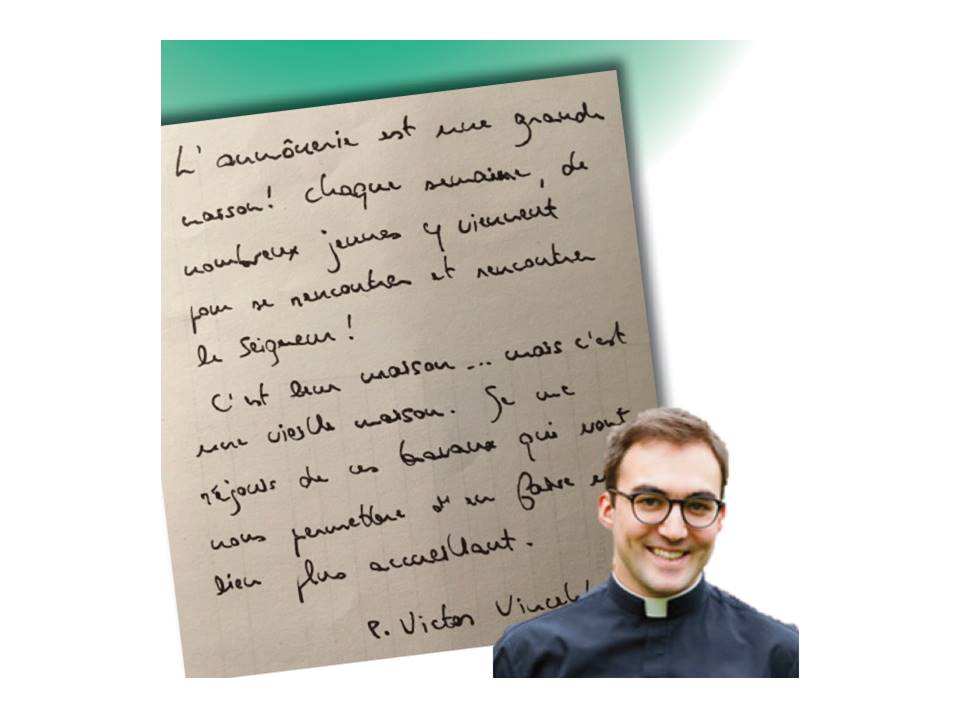 L'aumônerie est une grande
maison! Chaque semaine, de
nombreux jeunes y viennent
pour se rencontrer et rencontrer
le Seigneur!
C'est leur maison... mais c'est
une vieille maison. Je me
réjouis de ces travaux qui vont
nous permettre d'en faire
lieu plus accueillant.
P. Victor